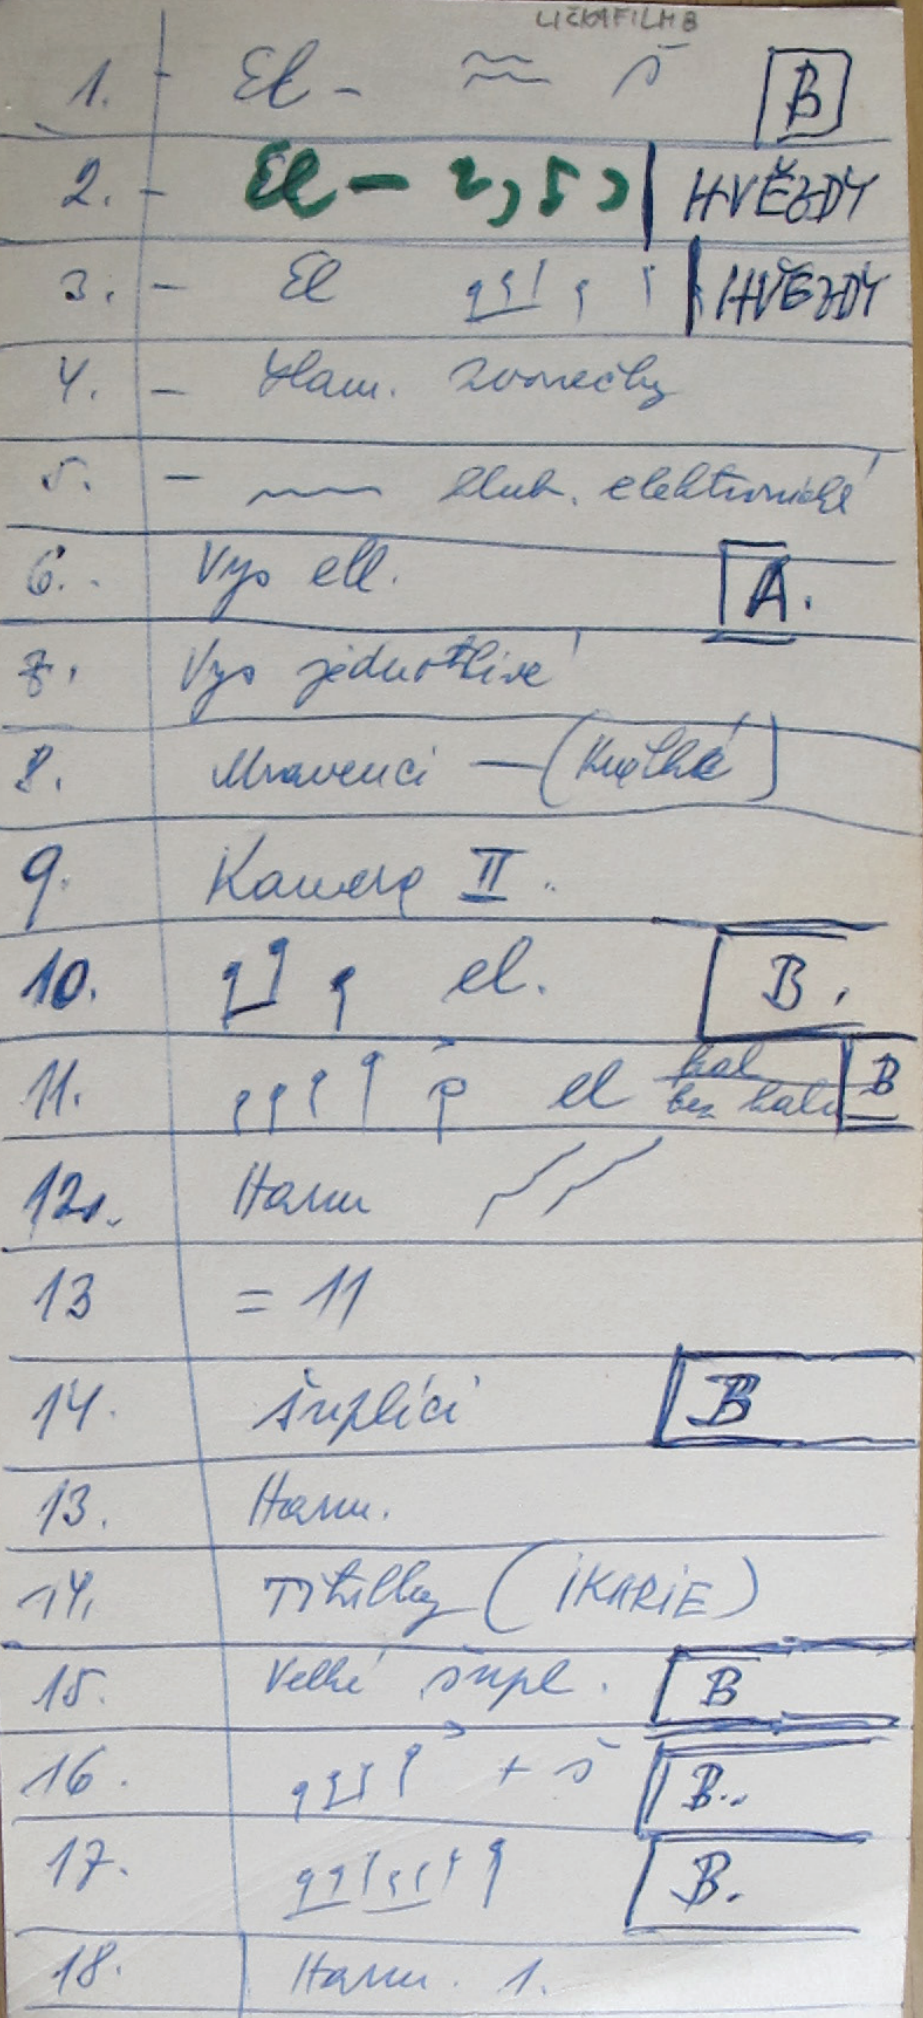 LIČKAFILM B
1. - El - š B
2. - El - 2, 5, HVĚZDY
3. - El HVĚZDY
4. - Ham. zvonečky
5. - hlub. elektronické
6. Vys ell. A.
7. Vys jednotlivé
8. Mravenci - (Krátké)
9. Kamera II
10. el. B.
11. el hal bez halu B
12. Harm
13 = 11
14. šuplíci B
13. Harm.
14. Titulky (IKARIE)
15. Velké šupl. B
16. + š B..
17. B.
18. Harm. 1.